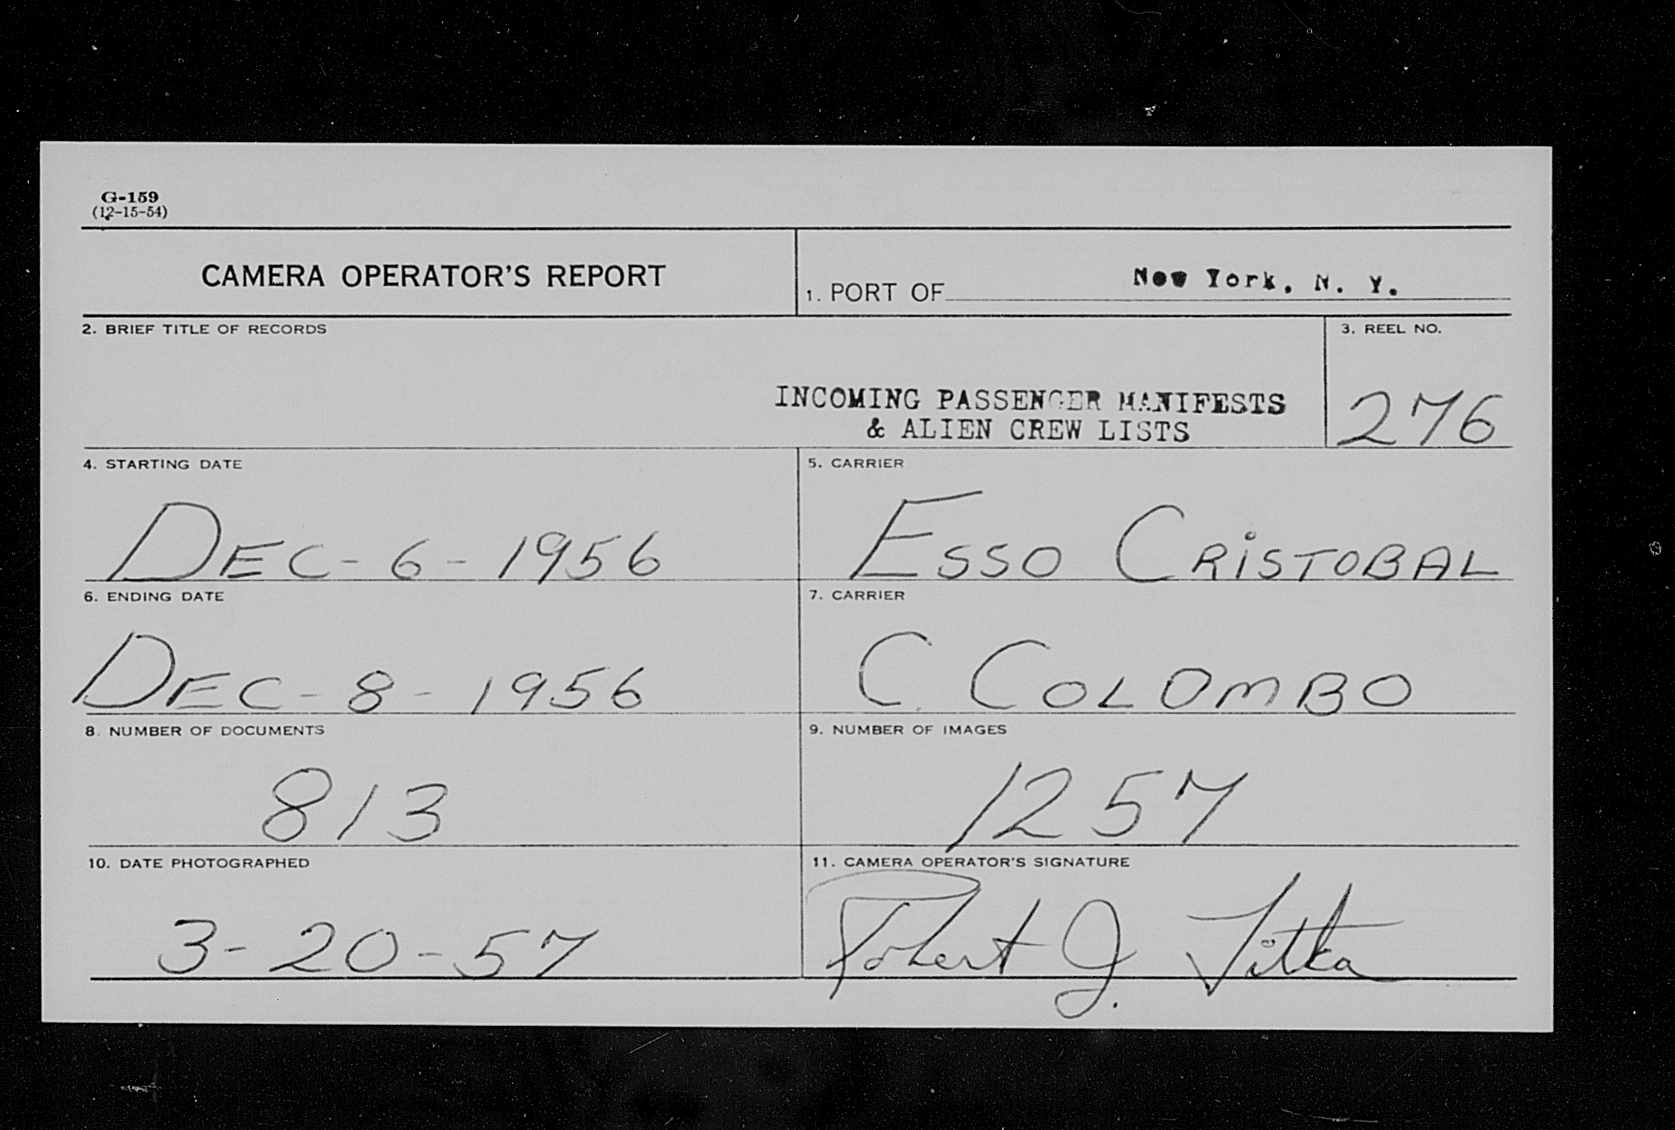 G-159
(12-15-54)
CAMERA OPERATOR'S REPORT
1. PORT OF New York, N. Y.
2. BRIEF TITLE OF RECORDS
3. REEL NO.
INCOMING PASSENGER MANIFESTS
& ALIEN CREW LISTS
276
4. STARTING DATE
5. CARRIER
DEC-6-1956
ESSO CRISTOBAL
6. ENDING DATE
7. CARRIER
DEC-8-1956
C. COLOMBO
8. NUMBER OF DOCUMENTS
9. NUMBER OF IMAGES
813
1257
10. DATE PHOTOGRAPHED
11. CAMERA OPERATOR'S SIGNATURE
3-20-57
Robert J.